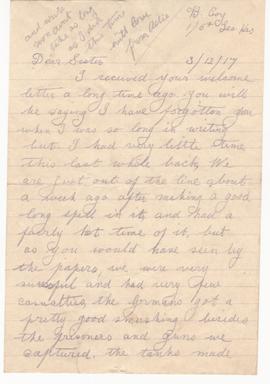 and write
soon don't
take as long
as I did
this time
with love
from Alec
B Coy
1/6th Sea Hrs
3/12/17
Dear Sister
I received your welcome
letter a long time ago. you will
be saying I have forgotten you
when I was so long in writing
but I had very little time
this last while back. We
are just out of the line about
a week ago after making a good
long spell in it, and had a
fairly hot time of it, but
as you would have seen by
the papers, we were very
sucessful and had very few
casualties, the Germans got a
pretty good smashing besides
the prisoners and guns we
captured, the tanks made